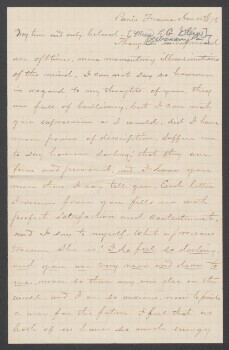 Paris France Jan 10th 19
My love and only beloved
Thoughts
are ofttimes, mere momentary illuminations
of the mind, I can not say so however
in regard to my thoughts, of you they
are full of brilliancy, but I can not
give expression as I would, did I have
more powers of description. Suffice it
to say however darling, that they are
firm and permanent, and I love you
more than I can tell you. Each letter
I receive from you fills me with
perfect satisfaction and contentment,
and I say to myself, What a precious
woman She is! I do feel so, darling,
and you are very near and dear to
me, more so than any one else in the
world, and I am so anxious now to pave
a way for the future. I feel that we
both of us have so much energy